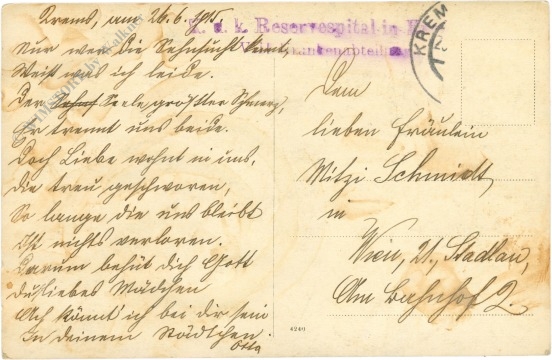 Krems, am 26.6.1915.
Nur wer die Sehnsucht kennt,
Weiß was ich leide.
Der Seele größter Schmerz,
Er trennt uns beide.
Doch Liebe wohnt in uns,
die treu geschworen,
So lange die uns bleibt
Ist nichts verloren.
Darum behüt dich Gott
du liebes Mädchen
Ach könnt ich bei dir sein
In deinem Städtchen.
Otto
K. u. k. Reservespital in K
KREMS
Dem
lieben Fräulein
Mitzi Schmidt,
in
Wien, 21. Stadlau,
Am Bahnhof 2.
4240